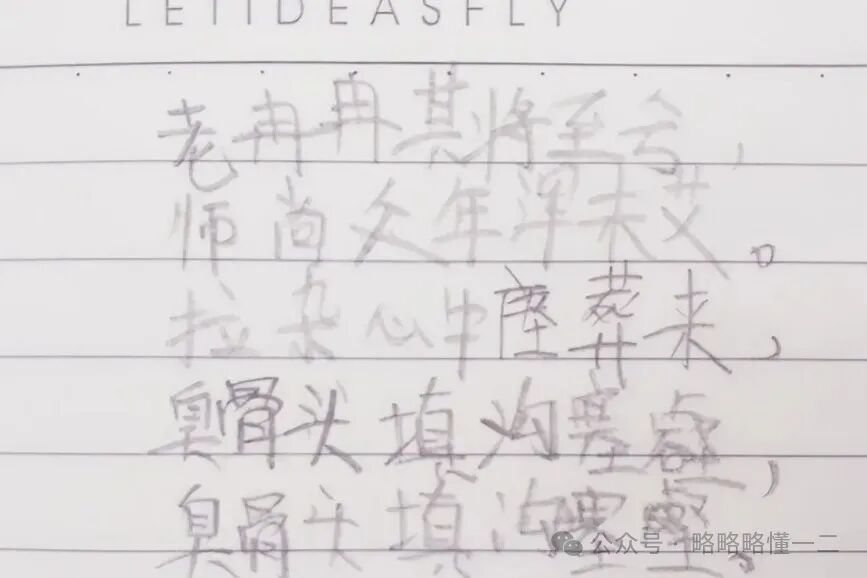 LETIDEASFLY
老冉冉其将至兮，
师尚父年浑未艾。
拉杂心中尘葬来，
臭骨头填沟塞壑，
臭骨头填沟塞壑。
公众号·略略略懂一二